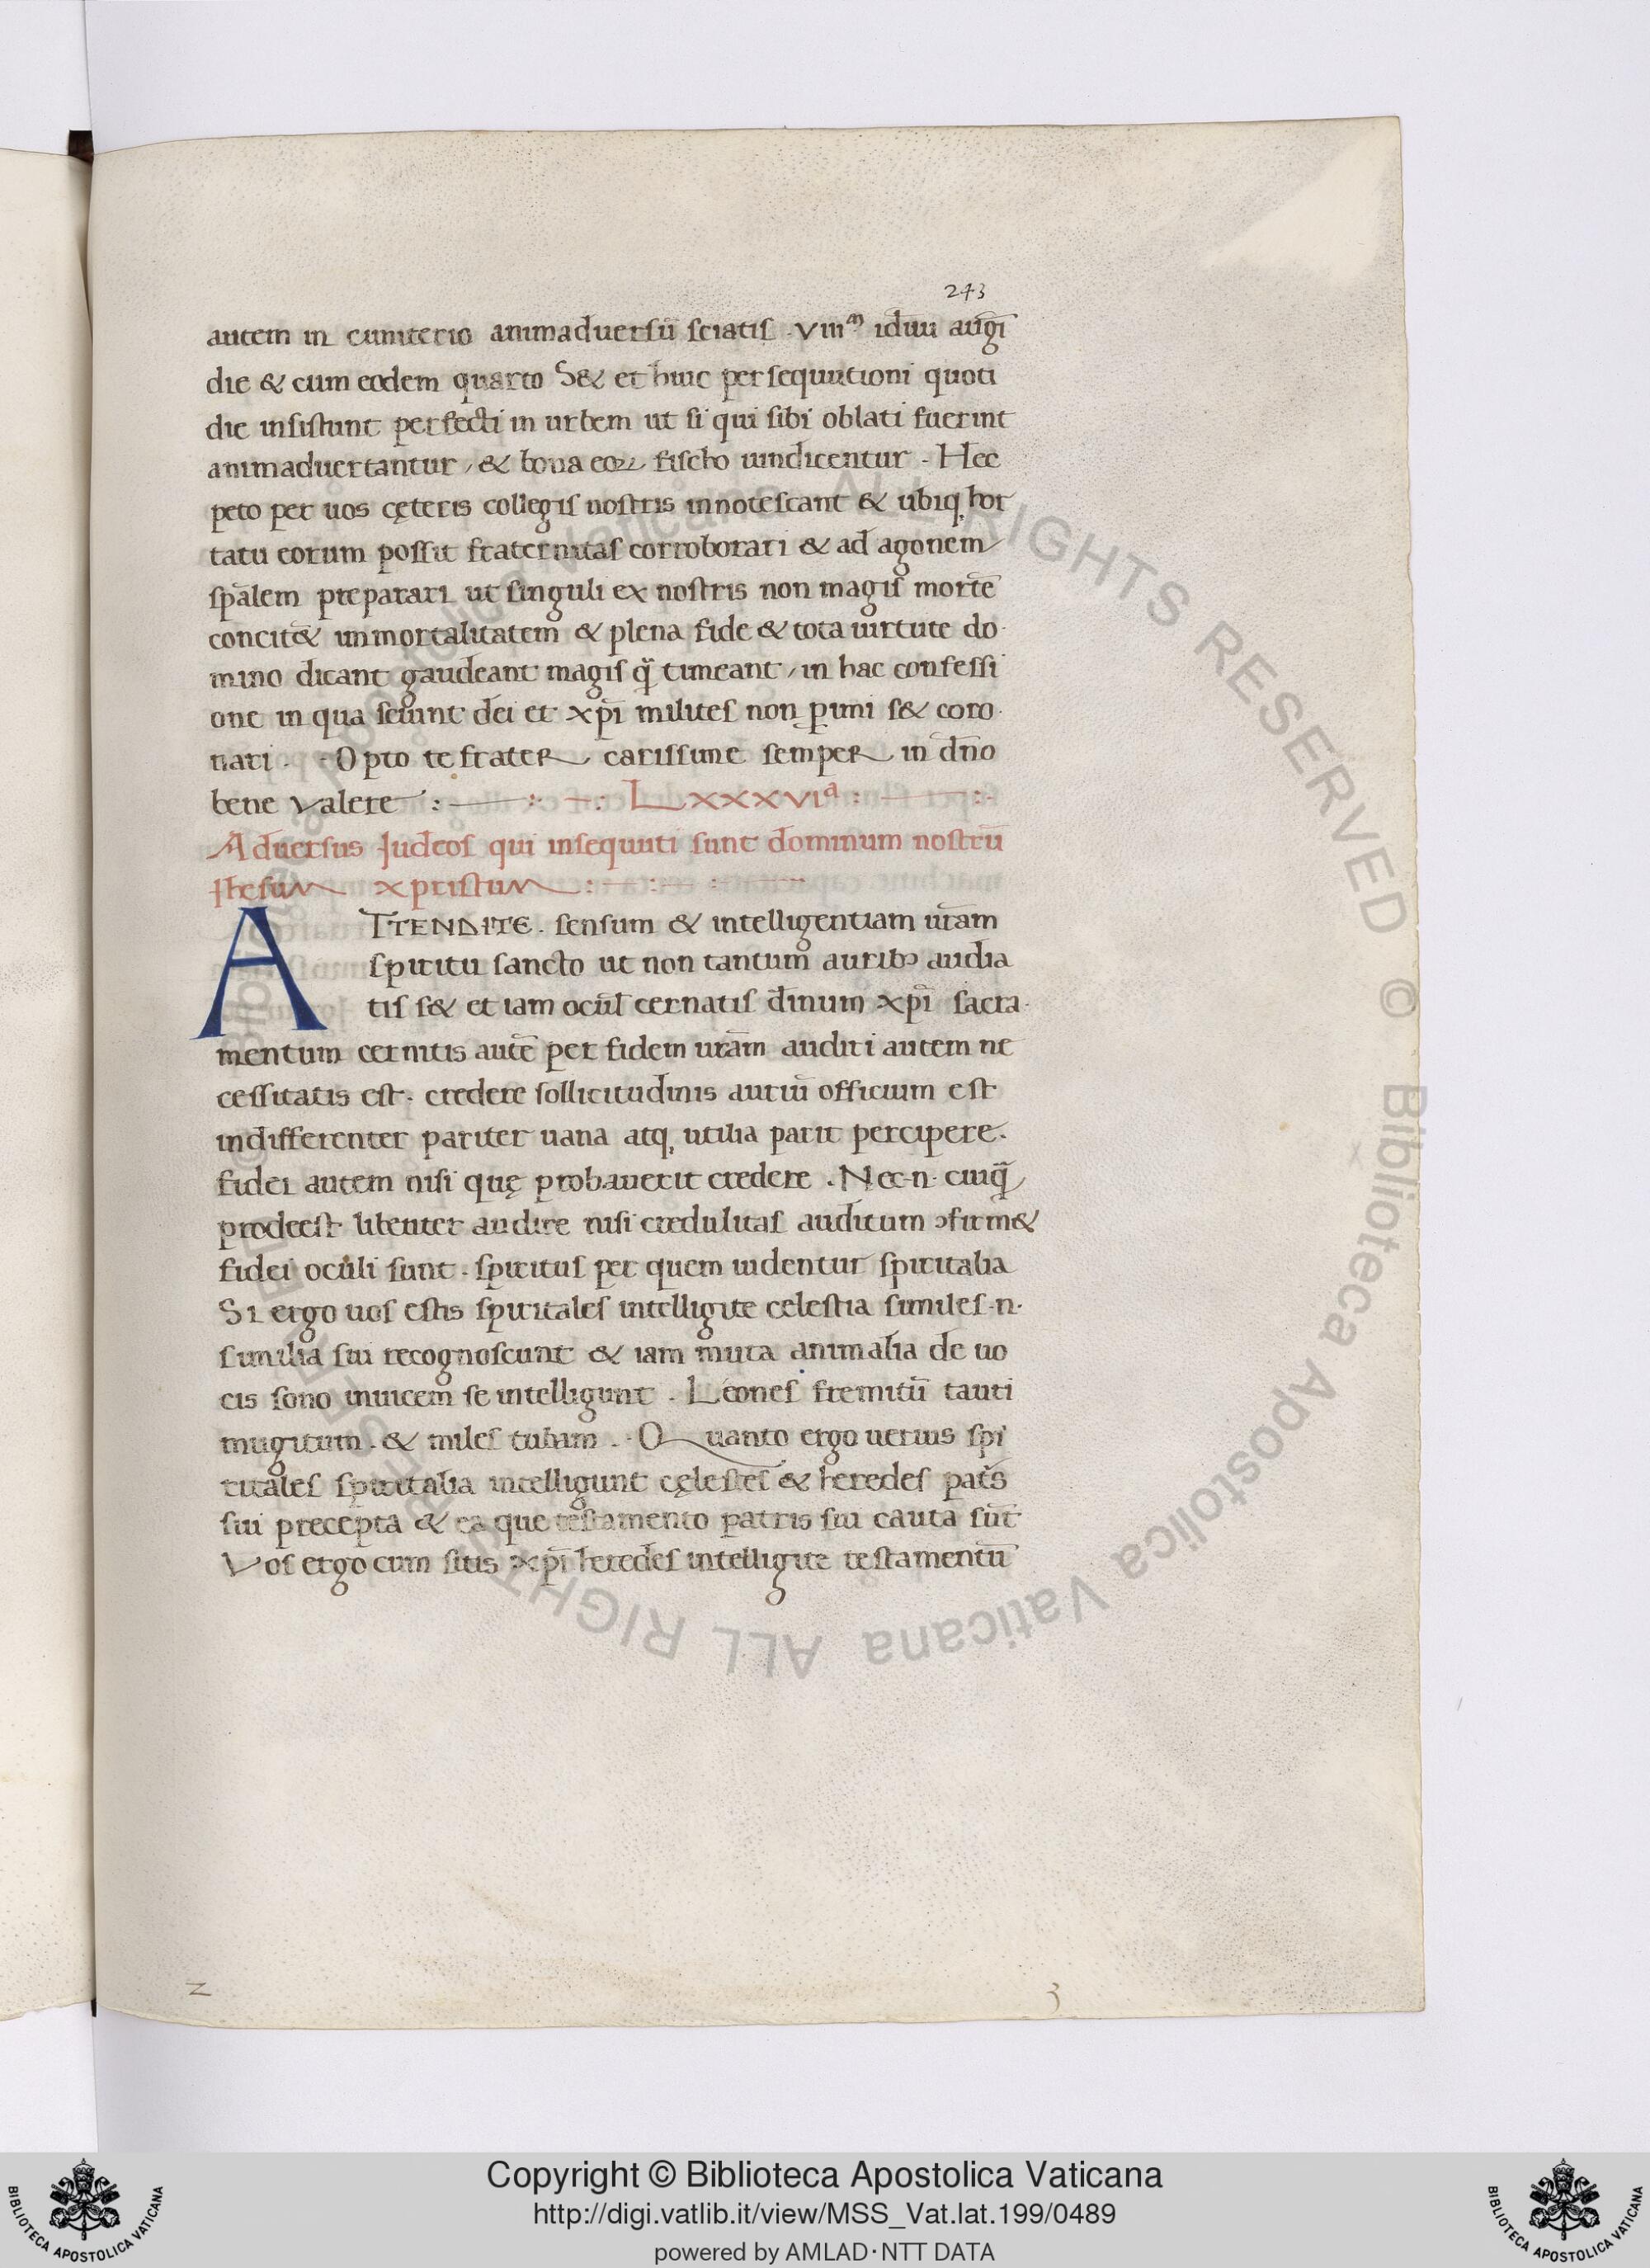 243
autem in cimiterio animaduersū sciatis .VIIIᵐ iduū augī
die & cum eodem quarto S& et huic persequutioni quoti
die insistunt perfecti in urbem ut si qui sibi oblati fuerint
animaduertantur, & bona eoꝝ fischo uindicentur . Hec
peto per uos cęteris collegis nostris innotescant & ubiqꝫ hor
tatu eorum possit fraternitas corroborari & ad agonem
spālem preparari ut singuli ex nostris non magis mortē
concit& inmortalitatem & plena fide & tota uirtute do
mino dicant gaudeant magis q̄ timeant, in hac confessi
one in qua sciunt dei et xp̄i milites non ꝑimi s& coro
nari . Opto te frater carissime semper in dn̄o
bene valere :
LXXXVIᵃ :
Aduersus Judeos qui insequuti sunt dominum nostrū
Ihesum xpristum :
ATTENDITE . sensum & intelligentiam ur̄am
spiritu sancto ut non tantum auribꝫ audia
tis s& et iam ocul̄ cernatis diuinum xp̄i sacra
mentum cernitis autē per fidem ur̄am audiri autem ne
cessitatis est . credere sollicitudinis auriū officium est
indifferenter pariter uana atqꝫ utilia parit percipere .
fidei autem nisi quę probauerit credere . Nec .n. cuiq̄
prodeest libenter audire nisi credulitas auditum ꝯfirm&
fidei oculi sunt . spiritus per quem uidentur spiritalia
Si ergo uos estis spiritales intelligite celestia similes .n.
similia sui recognoscunt & iam muta animalia de uo
cis sono inuicem se intelligunt . Leones fremitū tauri
mugitum . & miles tubam . Quanto ergo uerius spi
ritales spiritalia intelligunt cęlestes & heredes patr̄s
sui precepta & ea que testamento patris sui cauta sūt
Vos ergo cum sitis xp̄i heredes intelligite testamentū
Z
3
Biblioteca Apostolica Vaticana ALL RIGHTS RESERVED ©
Copyright © Biblioteca Apostolica Vaticana
http://digi.vatlib.it/view/MSS_Vat.lat.199/0489
powered by AMLAD·NTT DATA
BIBLIOTECA APOSTOLICA VATICANA
BIBLIOTECA APOSTOLICA VATICANA